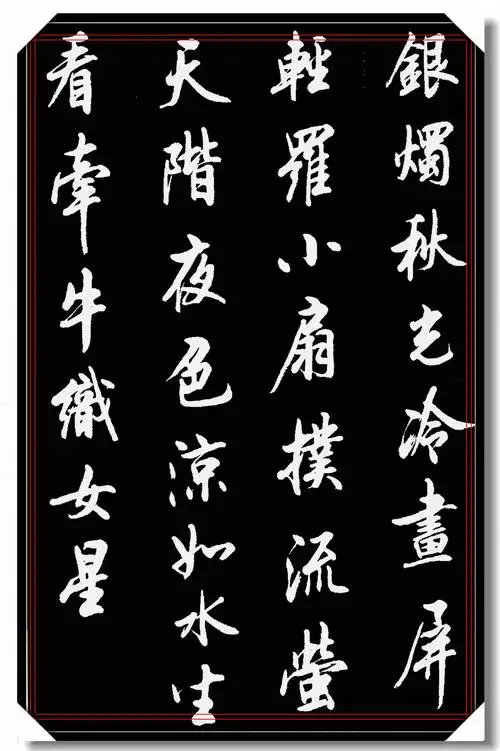 銀燭秋光冷畫屏
輕羅小扇撲流螢
天階夜色涼如水坐
看牽牛織女星